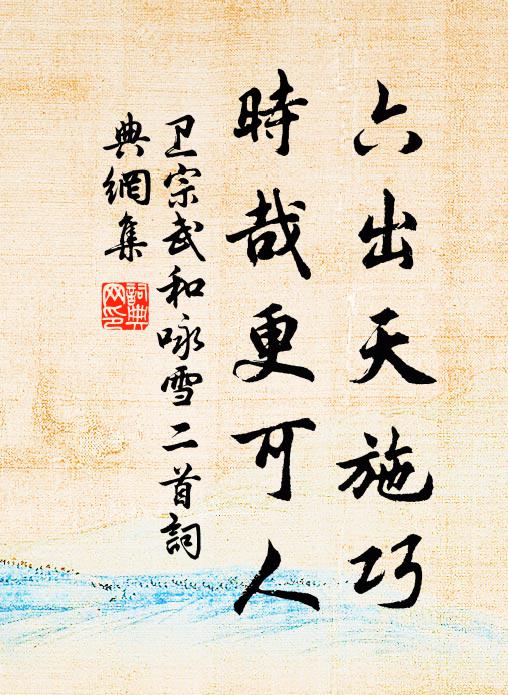 六出天施巧
時哉更可人
卫宗武和咏雪二首詞
典網集
詞典
网印